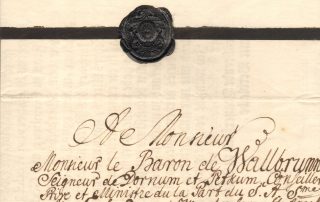 A Monsieur
Monsieur le Baron de Wallbrunn
Seigneur de Dornum et Petkum, Conseiller
Privé et Ministre de la Part de S. A. Sme